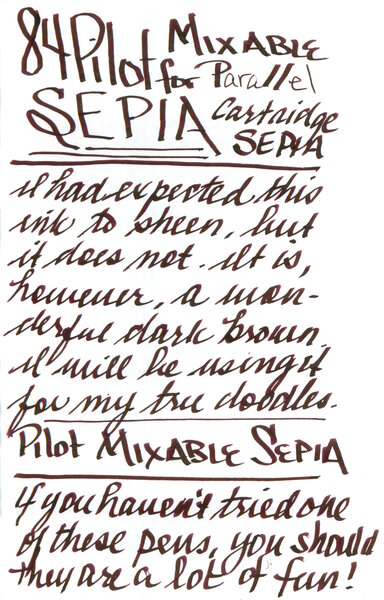 84 Pilot Mixable
for Parallel
SEPIA Cartridge
SEPIA
I had expected this
ink to sheen, but
it does not. It is,
however, a won-
derful dark brown.
I will be using it
for my tree doodles.
Pilot Mixable Sepia
If you haven't tried one
of these pens, you should
they are a lot of fun!